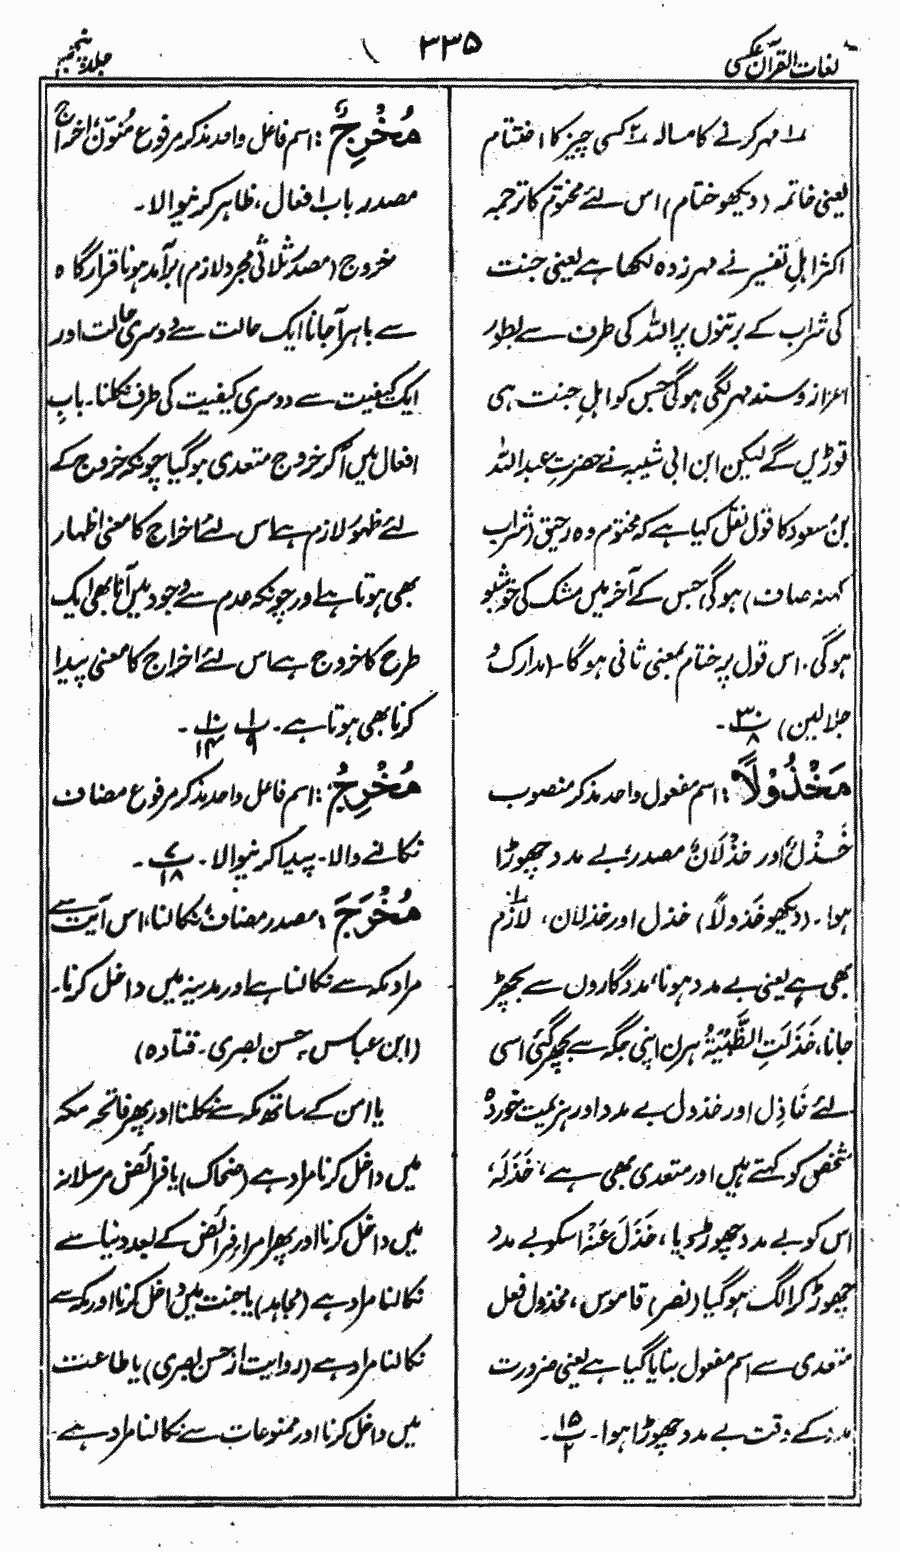 لغات القرآن عکسی
۳۳۵
جلد پنجم
۱ مہر کرنے کا مسالہ ۲ کسی چیز کا اختتام
یعنی خاتمہ (دیکھو ختام) اس لئے مختوم کا ترجمہ
اکثر اہلِ تفسیر نے مہر زدہ لکھا ہے یعنی جنت
کی شراب کے برتنوں پر اللہ کی طرف سے بطور
اعزاز و سند مہر لگی ہو گی جس کو اہلِ جنت ہی
توڑیں گے لیکن ابن ابی شیبہ نے حضرت عبداللہ
بن مسعود کا قول نقل کیا ہے کہ مختوم وہ رحیق (شراب
کہنہ صاف) ہو گی جس کے آخر میں مشک کی خوشبو
ہو گی۔ اس قول پر ختام بمعنی ثانی ہو گا۔ (مدارک و
جلالین) پ۳۰ ۸ ۔
مَخْذُوْلًا : اسم مفعول واحد مذکر منصوب
خَذْلٌ اور خِذْلَانٌ مصدر؛ بے مدد چھوڑا
ہوا۔ (دیکھو خَذُولًا) خذل اور خذلان، لازم
بھی ہے یعنی بے مدد ہونا، مددگاروں سے بچھڑ
جانا، خَذَلَتِ الظَّبْیَۃُ ہرن اپنی جگہ سے بچھڑ گئی اسی
لئے خَاذِل اور خذول بے مدد اور ہزیمت خوردہ
شخص کو کہتے ہیں اور متعدی بھی ہے، خَذَلَہٗ
اس کو بے مدد چھوڑ دیا، خَذَلَ عَنْہُ اسکو بے مدد
چھوڑ کر الگ ہو گیا (نصر) قاموس، مخذول فعل
متعدی سے اسم مفعول بنایا گیا ہے یعنی ضرورت
مدد کے وقت بے مدد چھوڑا ہوا۔ پ۱۵ ۲ ۔
مُخْرِجٌ : اسم فاعل واحد مذکر مرفوع مُنَوَّن، اخراج
مصدر باب افعال، ظاہر کرنیوالا۔
خروج (مصدر ثلاثی مجرد لازم) برآمد ہونا قرارگاہ
سے باہر آجانا ایک حالت سے دوسری حالت اور
ایک کیفیت سے دوسری کیفیت کی طرف نکلنا۔ بابِ
افعال میں آکر خروج متعدی ہو گیا چونکہ خروج کے
لئے ظہور لازم ہے اس لئے اخراج کا معنی اظہار
بھی ہوتا ہے اور چونکہ عدم سے وجود میں آنا بھی ایک
طرح کا خروج ہے اس لئے اخراج کا معنی پیدا
کرنا بھی ہوتا ہے۔ پ۱ ۹ پ۱۰ ۱۴ ۔
مُخْرِجُ : اسم فاعل واحد مذکر مرفوع مضاف
نکالنے والا۔ پیدا کرنیوالا۔ پ۷ ۱۸ ۔
مُخْرَجَ : مصدر مضاف، نکالنا، اس آیت سے
مراد مکہ سے نکالنا ہے اور مدینہ میں داخل کرنا۔
(ابن عباس۔ حسن بصری۔ قتادہ)
یا امن کے ساتھ مکہ سے نکلنا اور پھر فاتحہ مکہ
میں داخل کرنا مراد ہے (ضحاک) یا فرائض مرسلانہ
میں داخل کرنا اور پھر امرار فرائض کے بعد دنیا سے
نکالنا مراد ہے (مجاہد) یا جنت میں داخل کرنا اور مکہ سے
نکالنا مراد ہے (روایت از حسن بصری) یا طاعت
میں داخل کرنا اور ممنوعات سے نکالنا مراد ہے۔